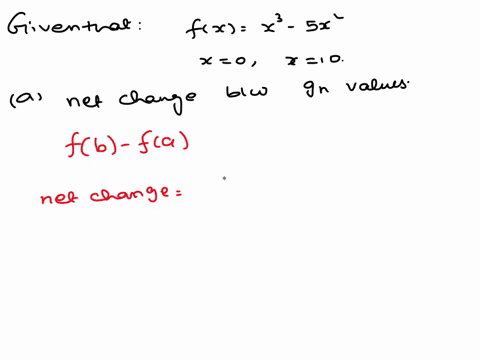 Giventhat: f(x) = x³ - 5x²
x = 0, x = 10.
(a) net change b/w gn values.
f(b) - f(a)
net change =